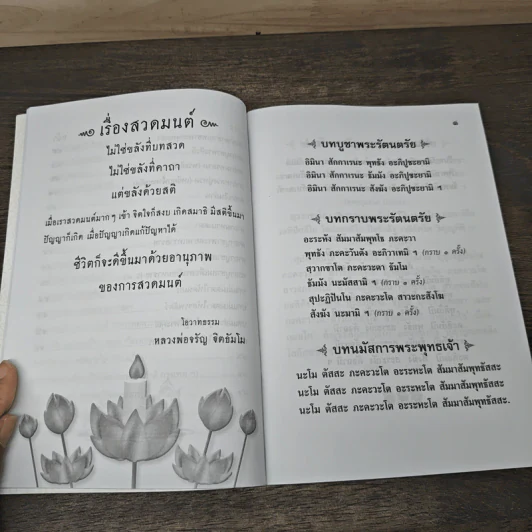 เรื่องสวดมนต์
ไม่ใช่ขลังที่บทสวด
ไม่ใช่ขลังที่คาถา
แต่ขลังด้วยสติ
เมื่อเราสวดมนต์มาก ๆ เข้า จิตใจก็สงบ เกิดสมาธิ มีสติขึ้นมา
ปัญญาก็เกิด เมื่อปัญญาเกิดแก้ปัญหาได้
ชีวิตก็จะดีขึ้นมาด้วยอานุภาพ
ของการสวดมนต์
โอวาทธรรม
หลวงพ่อจรัญ ฐิตธัมโม
๑
บทบูชาพระรัตนตรัย
อิมินา สักกาเรนะ พุทธัง อะภิปูชะยามิ
อิมินา สักกาเรนะ ธัมมัง อะภิปูชะยามิ
อิมินา สักกาเรนะ สังฆัง อะภิปูชะยามิ ฯ
บทกราบพระรัตนตรัย
อะระหัง สัมมาสัมพุทโธ ภะคะวา
พุทธัง ภะคะวันตัง อะภิวาเทมิ ฯ (กราบ ๑ ครั้ง)
สวากขาโต ภะคะวะตา ธัมโม
ธัมมัง นะมัสสามิ ฯ (กราบ ๑ ครั้ง)
สุปะฏิปันโน ภะคะวะโต สาวะกะสังโฆ
สังฆัง นะมามิ ฯ (กราบ ๑ ครั้ง)
บทนมัสการพระพุทธเจ้า
นะโม ตัสสะ ภะคะวะโต อะระหะโต สัมมาสัมพุทธัสสะ
นะโม ตัสสะ ภะคะวะโต อะระหะโต สัมมาสัมพุทธัสสะ
นะโม ตัสสะ ภะคะวะโต อะระหะโต สัมมาสัมพุทธัสสะ.